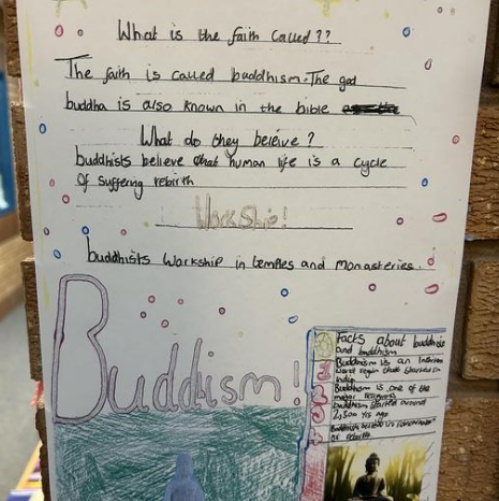 What is the faith Called??
The faith is called buddhism. The god
buddha is also known in the bible
What do they beleive?
buddhists believe that human life is a cycle
Of suffering rebirth
WorkShip!
buddhists Workship in temples and monasteries.
Buddism!
Facts about buddhists
and buddhism
Buddhism is an Indian
that started in
India
Buddhism is one of the
major
buddhism started around
2,500 yrs ago
or rebirth